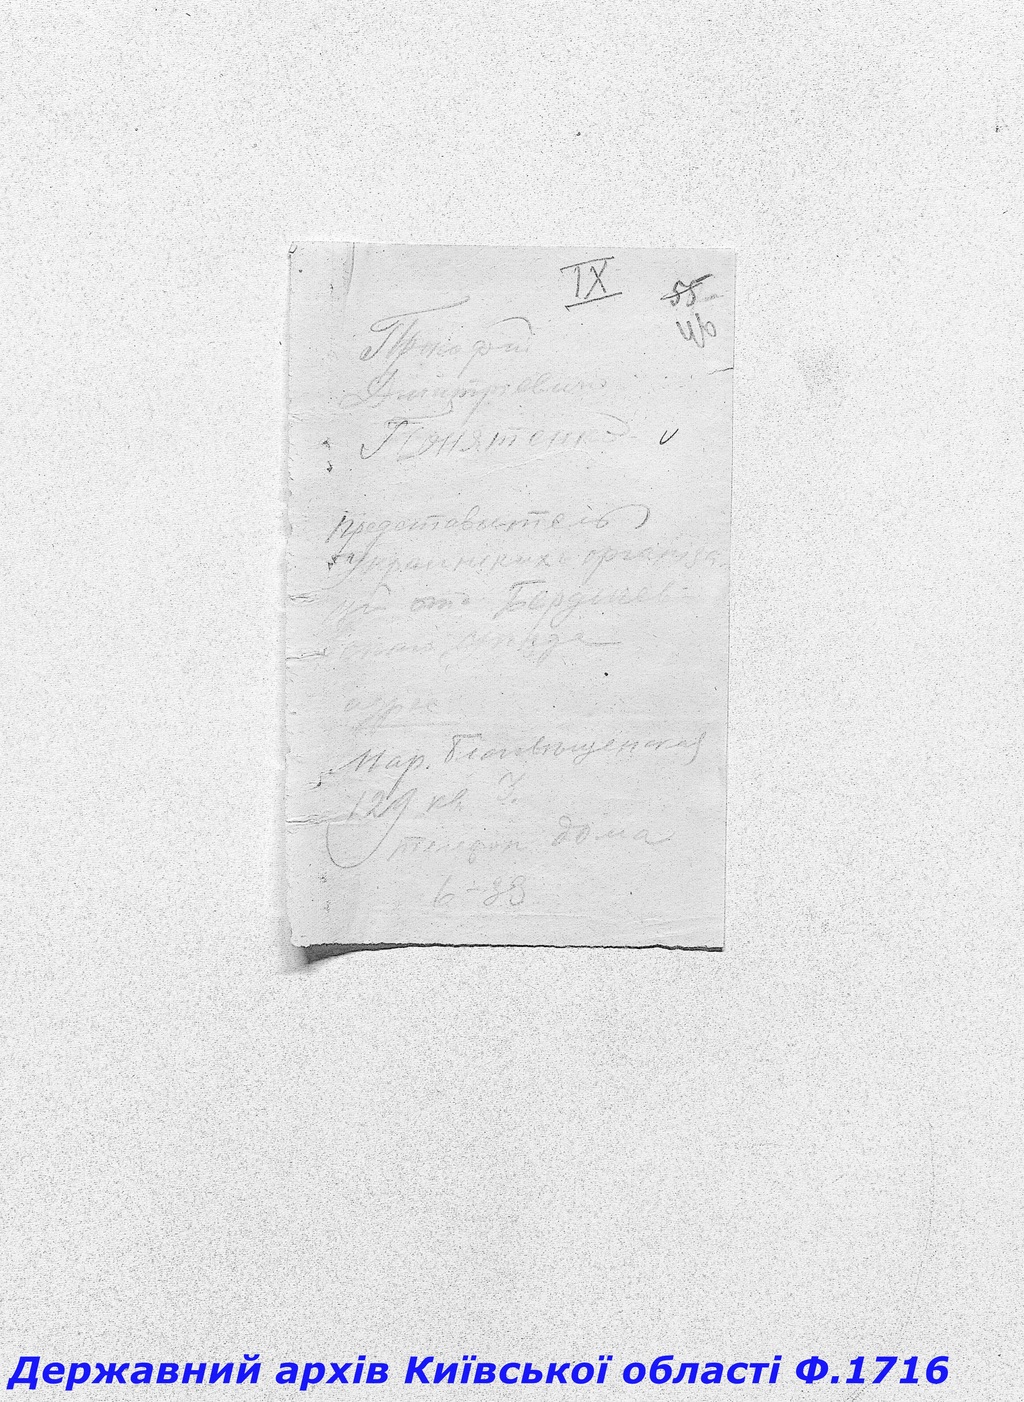 IX
55
46
Прокофій
Дмитріевичъ
Понятенко
Представитель
Украинскихъ организа
ций отъ Бердичев
адрес
Мар. Благовѣщенская
129 кв 7.
телефон дома
6-33
Державний архів Київської області Ф.1716